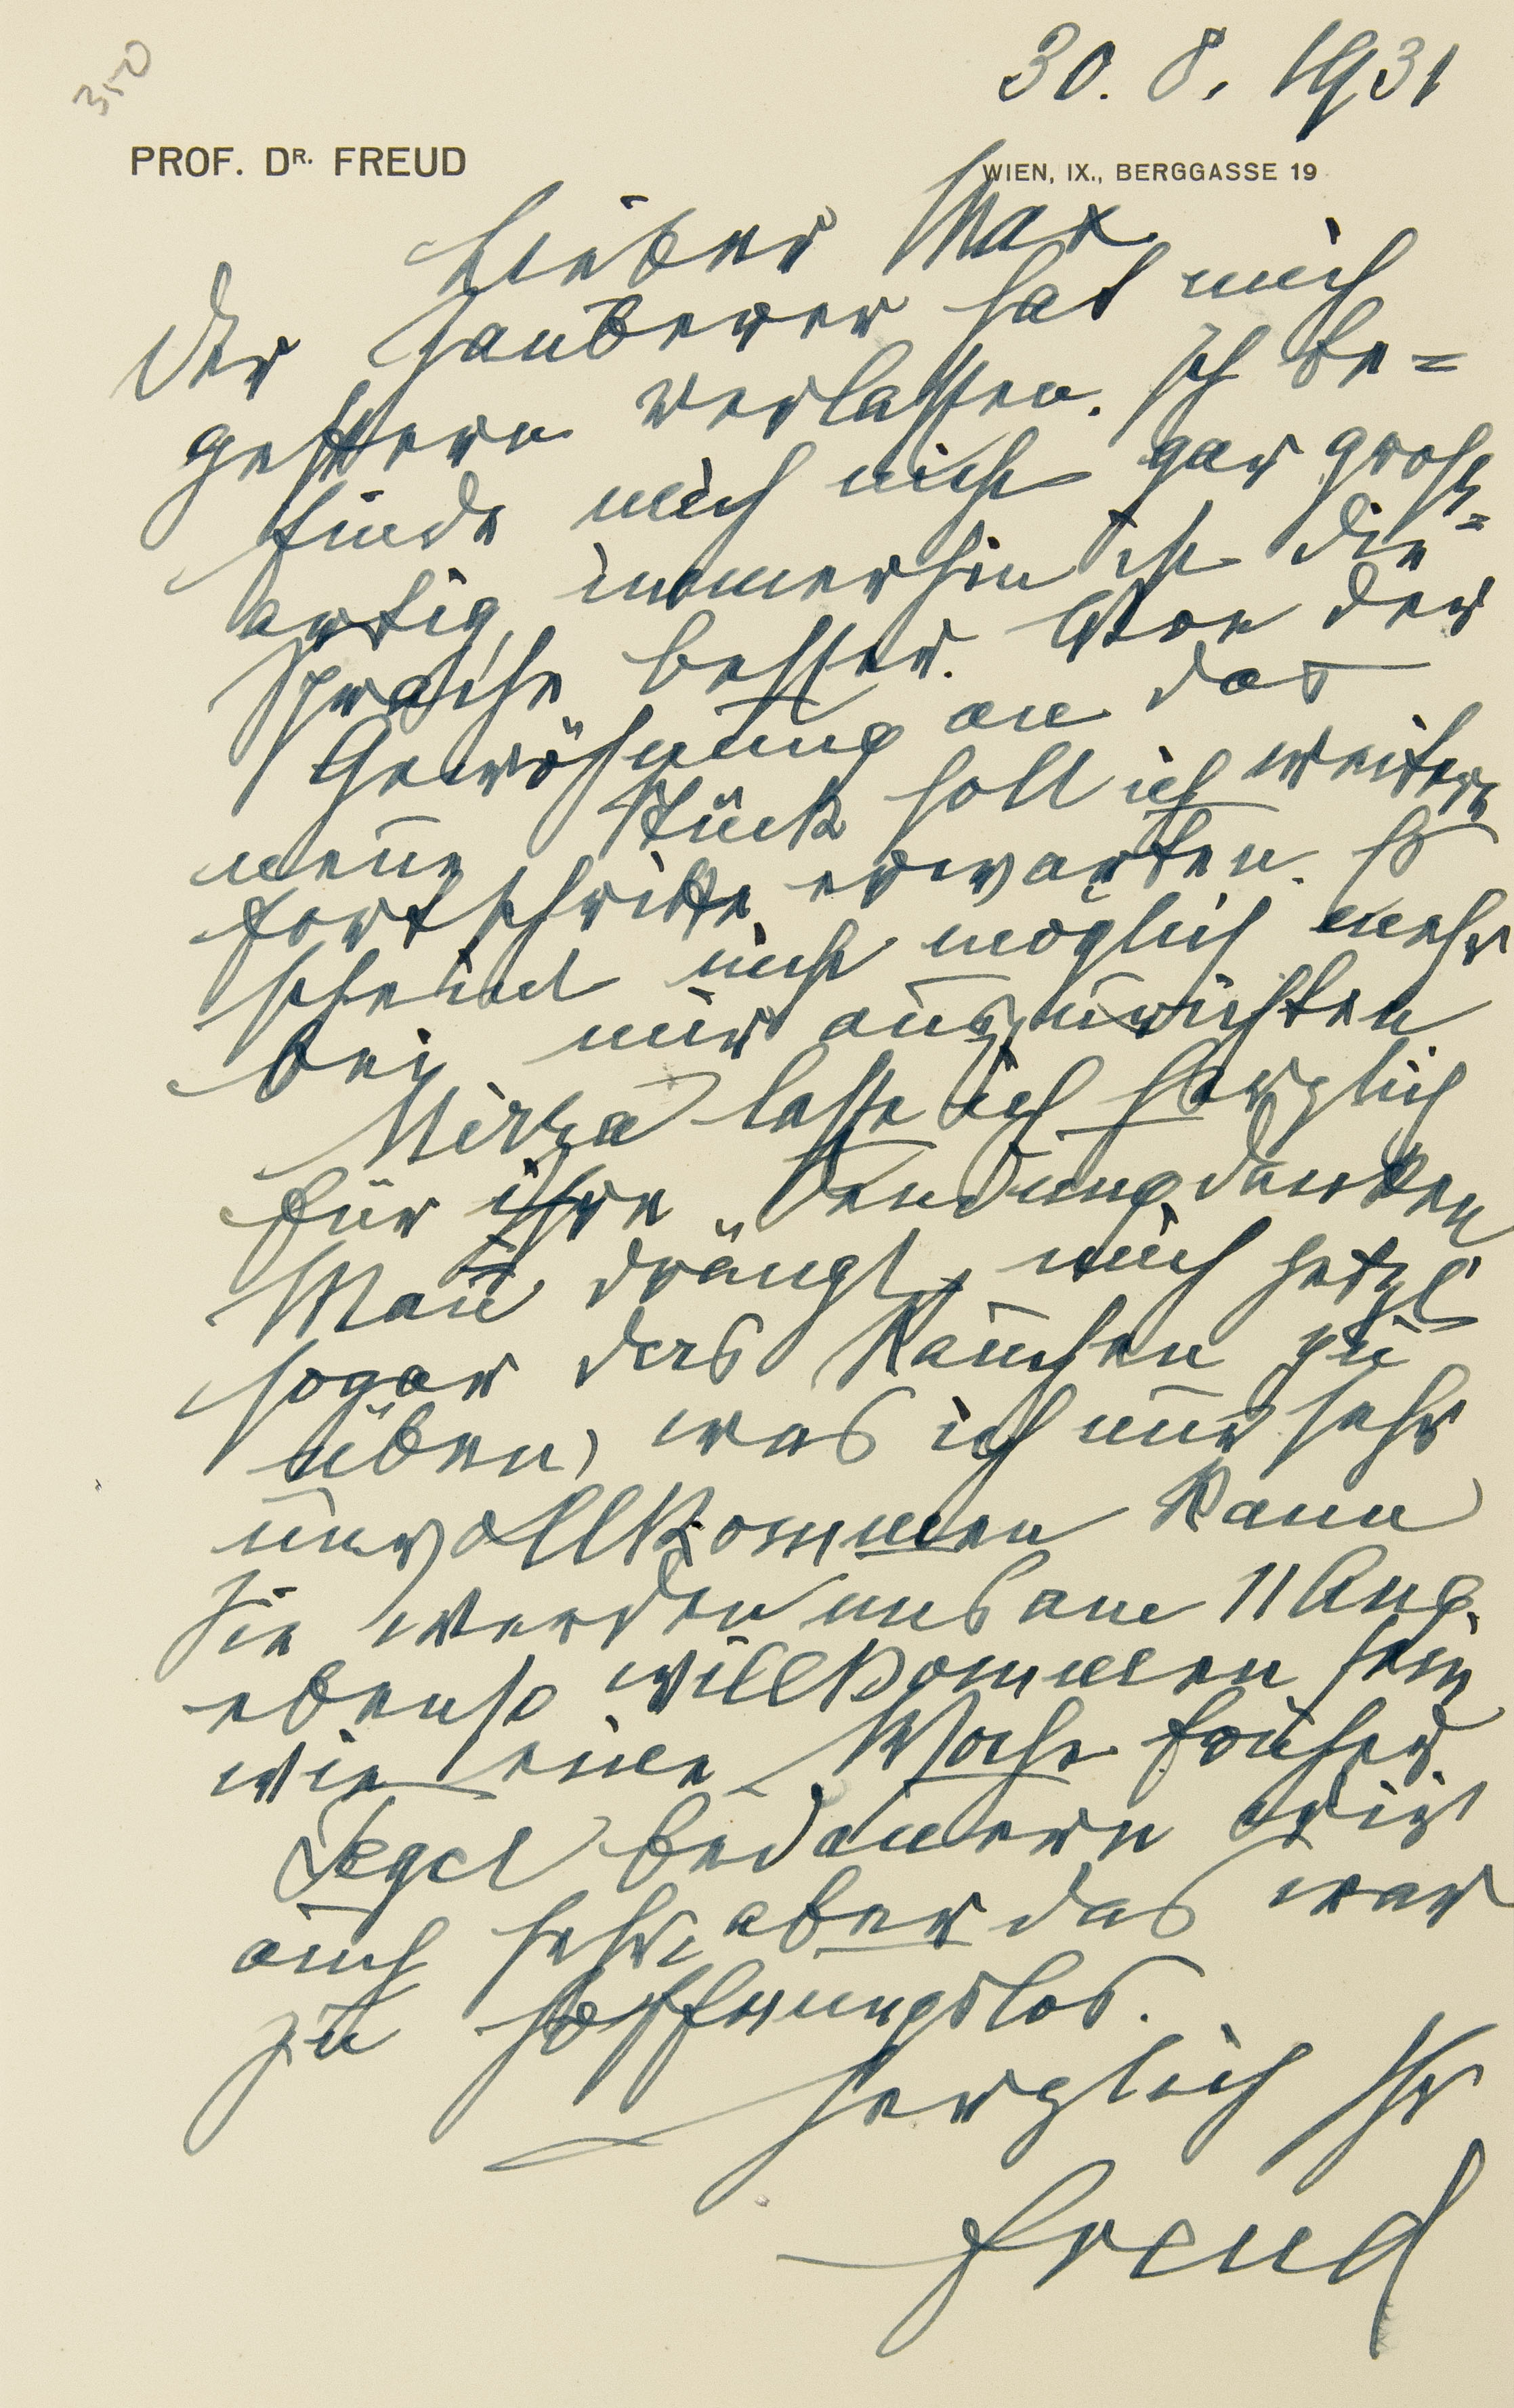 350
30. 8. 1931
PROF. DR. FREUD
WIEN, IX., BERGGASSE 19
Lieber Max
Der Zauberer hat mich
gestern verlassen. Ich be=
finde mich nicht gar groß=
artig, immerhin ist die
Sprache besser. Von der
Gewöhnung an das
neue Stück soll ich weitere
Fortschritte erwarten. Es
scheint nicht möglich mehr
bei mir auszurichten
Mirra lasse ich herzlich
für ihre Sendung danken
Man drängt mich jetzt
sogar das Rauchen zu
üben, was ich nur sehr
unvollkommen kann
Sie werden uns am 11 Aug.
ebenso willkommen sein
wie eine Woche früher.
Tegel bedauern wir
auch sehr, aber das war
zu hoffnungslos.
Herzlich Ihr
Freud